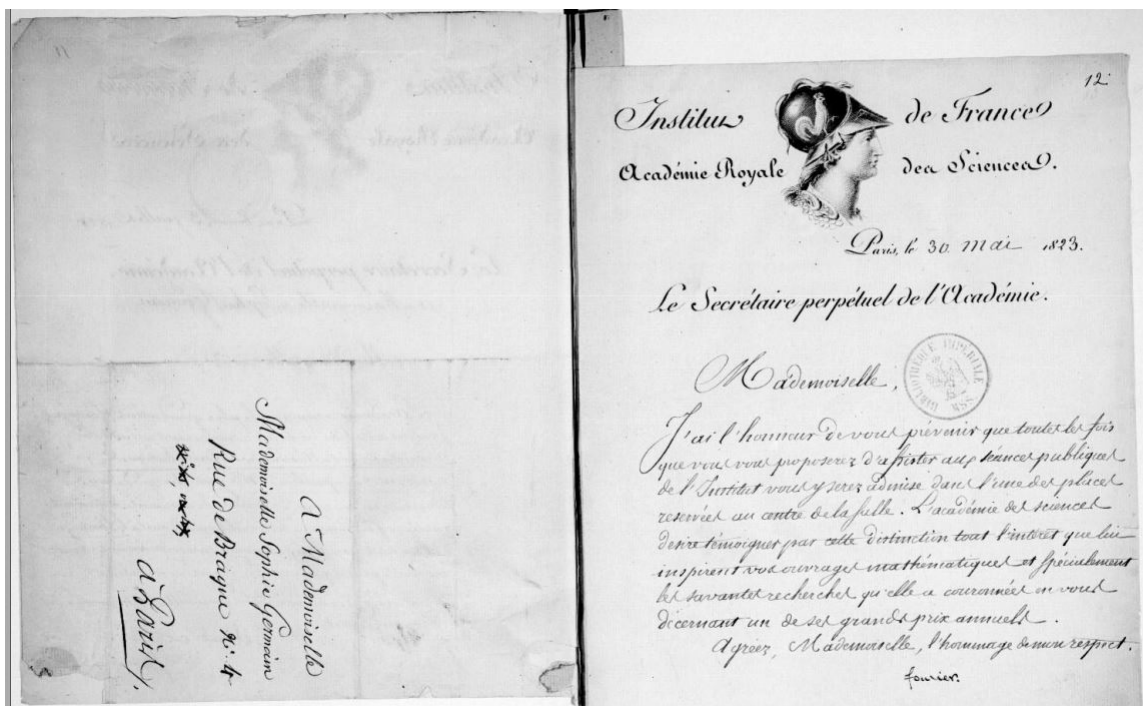 11
A Mademoiselle
Mademoiselle Sophie Germain
Rue de Braque N.º 4
à Paris.
12
Institut de France
Académie Royale des Sciences.
Paris, le 30 mai 1823.
Le Secrétaire perpétuel de l'Académie.
BIBLIOTHÈQUE IMPÉRIALE MSS
Mademoiselle,
J'ai l'honneur de vous prévenir que toutes les fois
que vous vous proposerez d'assister aux séances publiques
de l'Institut vous y serez admise dans l'une des places
reservées au centre de la salle. L'académie des sciences
desire témoigner par cette distinction tout l'intérêt que lui
inspirent vos ouvrages mathématiques et spécialement
les savantes recherches qu'elle a couronnées en vous
décernant un de ses grands prix annuels.
Agréez, Mademoiselle, l'hommage de mon respect.
fourier.